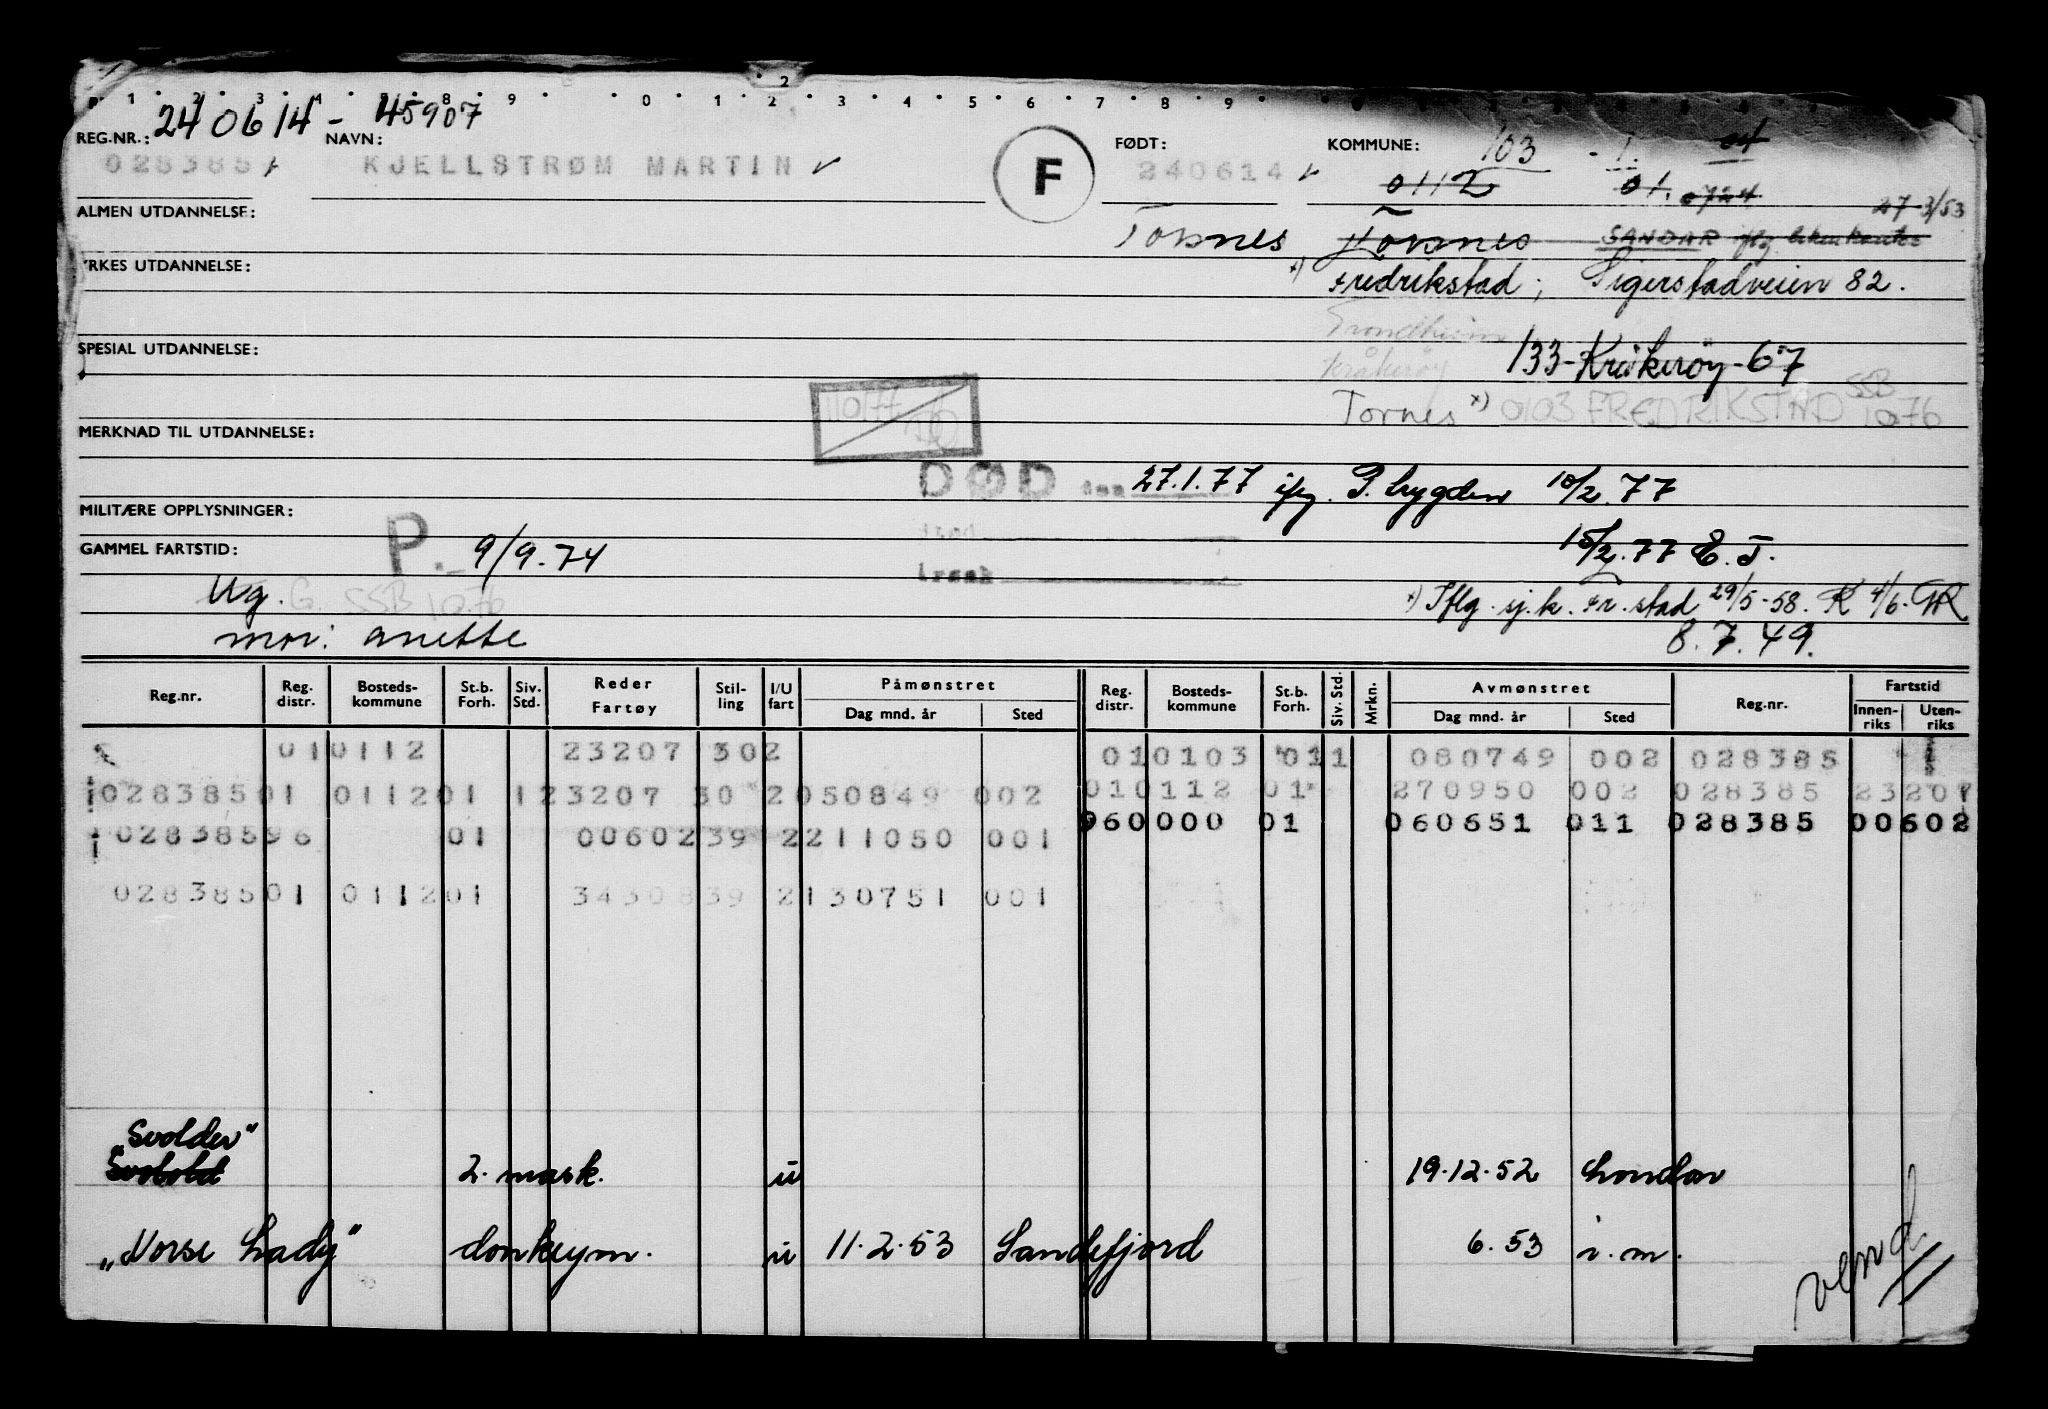 2
1 2 3 4 8 9 0 1 2 3 4 5 6 7 8 9
REG.NR.: 240614 - 45907 NAVN: FØDT: KOMMUNE: 103 - 1.
028385 KJELLSTRØM MARTIN F 240614 0112 01. 0724
ALMEN UTDANNELSE: 27-3/53
Torsnes Torsnes SANDAR iflg
YRKES UTDANNELSE: x) Fredrikstad; Sigerstadveien 82.
Trondheim
SPESIAL UTDANNELSE: 133-Kråkerøy-67
Kråkerøy
Torsnes x) 0103 FREDRIKSTAD SSB 10.76
MERKNAD TIL UTDANNELSE:
DØD den 27.1.77 iflg. P. trygden 10/2.77
MILITÆRE OPPLYSNINGER:
sted
GAMMEL FARTSTID: P. 9/9-74 15/2.77 E.T.
årsak
Ug. G. SSB 10.76 x) Iflg. sj.k. Fr.stad 29/5-58. K 4/6.
mor: Anette 8.7.49.
Reg.nr. Reg. distr. Bosteds-kommune St.b. Forh. Siv. Std. Reder Fartøy Stil-ling I/U fart Påmønstret Dag mnd. år Sted Reg. distr. Bosteds-kommune St.b. Forh. Siv. Std. Mrkn. Avmønstret Dag mnd. år Sted Reg.nr. Fartstid Innen-riks Uten-riks
01 0112 23207 302 01 0103 01 1 080749 002 028385
028385 01 0112 01 1 23207 30 2 050849 002 01 0112 01 270950 002 028385 23207
028385 96 01 00602 39 2 211050 001 96 0000 01 060651 011 028385 00602
028385 01 0112 01 34308 39 2 130751 001
"Svolder"
2. mask. u 19.12.52 London
"Norse Lady" donkeym. u 11.2.53 Sandefjord 6.53 i.m.
vend